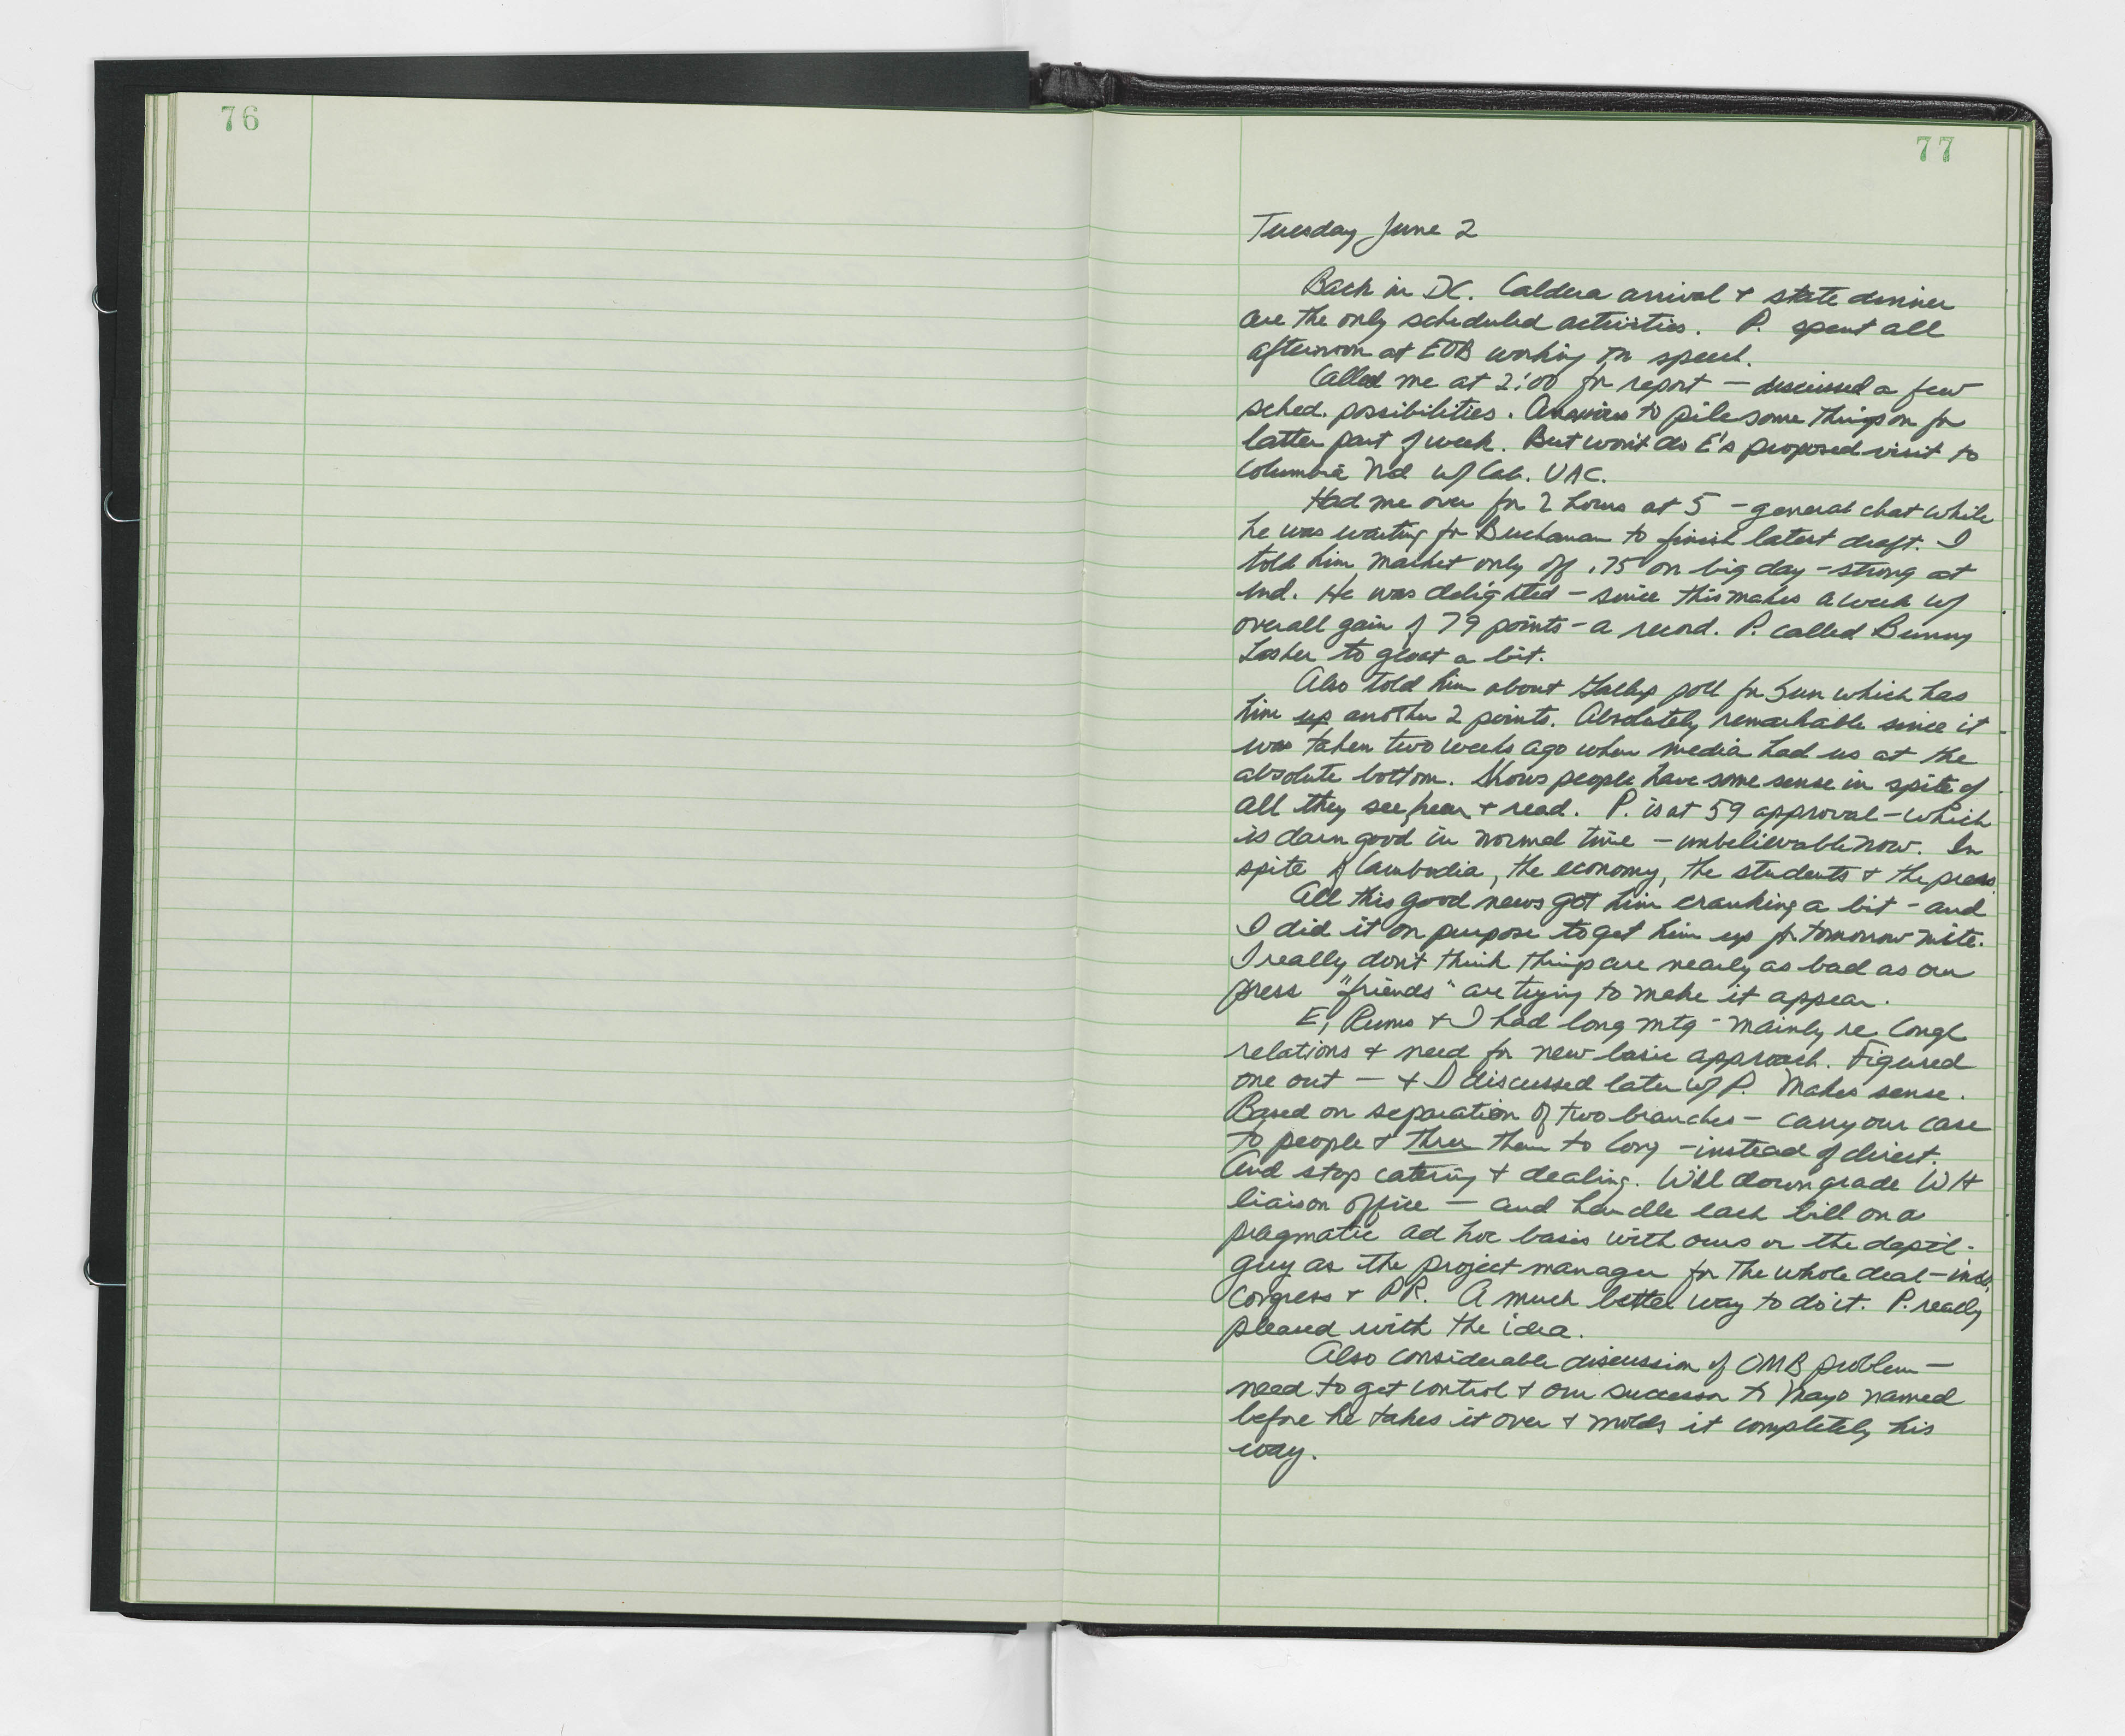 76
77
Tuesday June 2
Back in DC. Caldera arrival + state dinner
are the only scheduled activities. P. spent all
afternoon at EOB working on speech.
Called me at 2:00 for report — discussed a few
sched. possibilities. Anxious to pile some things on for
latter part of week. But won't do E's proposed visit to
Columbia Md w/ Cab. UAC.
Had me over for 2 hours at 5 - general chat while
he was waiting for Buchanan to finish latest draft. I
told him market only off .75 on big day - strong at
end. He was delighted - since this makes a week w/
overall gain of 79 points - a record. P. called Bunny
Lasker to gloat a bit.
Also told him about Gallup poll for Sun which has
him up another 2 points. Absolutely remarkable since it
was taken two weeks ago when media had us at the
absolute bottom. Shows people have some sense in spite of
all they see, hear + read. P. is at 59 approval - which
is darn good in normal time - unbelievable now. In
spite of Cambodia, the economy, the students + the press.
All this good news got him cranking a bit - and
I did it on purpose to get him up for tomorrow nite.
I really don't think things are nearly as bad as our
press "friends" are trying to make it appear.
E, Rums + I had long mtg - mainly re. Congl
relations + need for new basic approach. Figured
one out — + I discussed later w/ P. Makes sense.
Based on separation of two branches - carry our case
to people + thru them to Cong - instead of direct.
And stop catering + dealing. Will downgrade WH
liaison office — and handle each bill on a
pragmatic ad hoc basis with ours or the dept'l
guy as the project manager for the whole deal - incl.
Congress + PR. A much better way to do it. P. really
pleased with the idea.
Also considerable discussion of OMB problem —
need to get control + our successor to Mayo named
before he takes it over + molds it completely his
way.